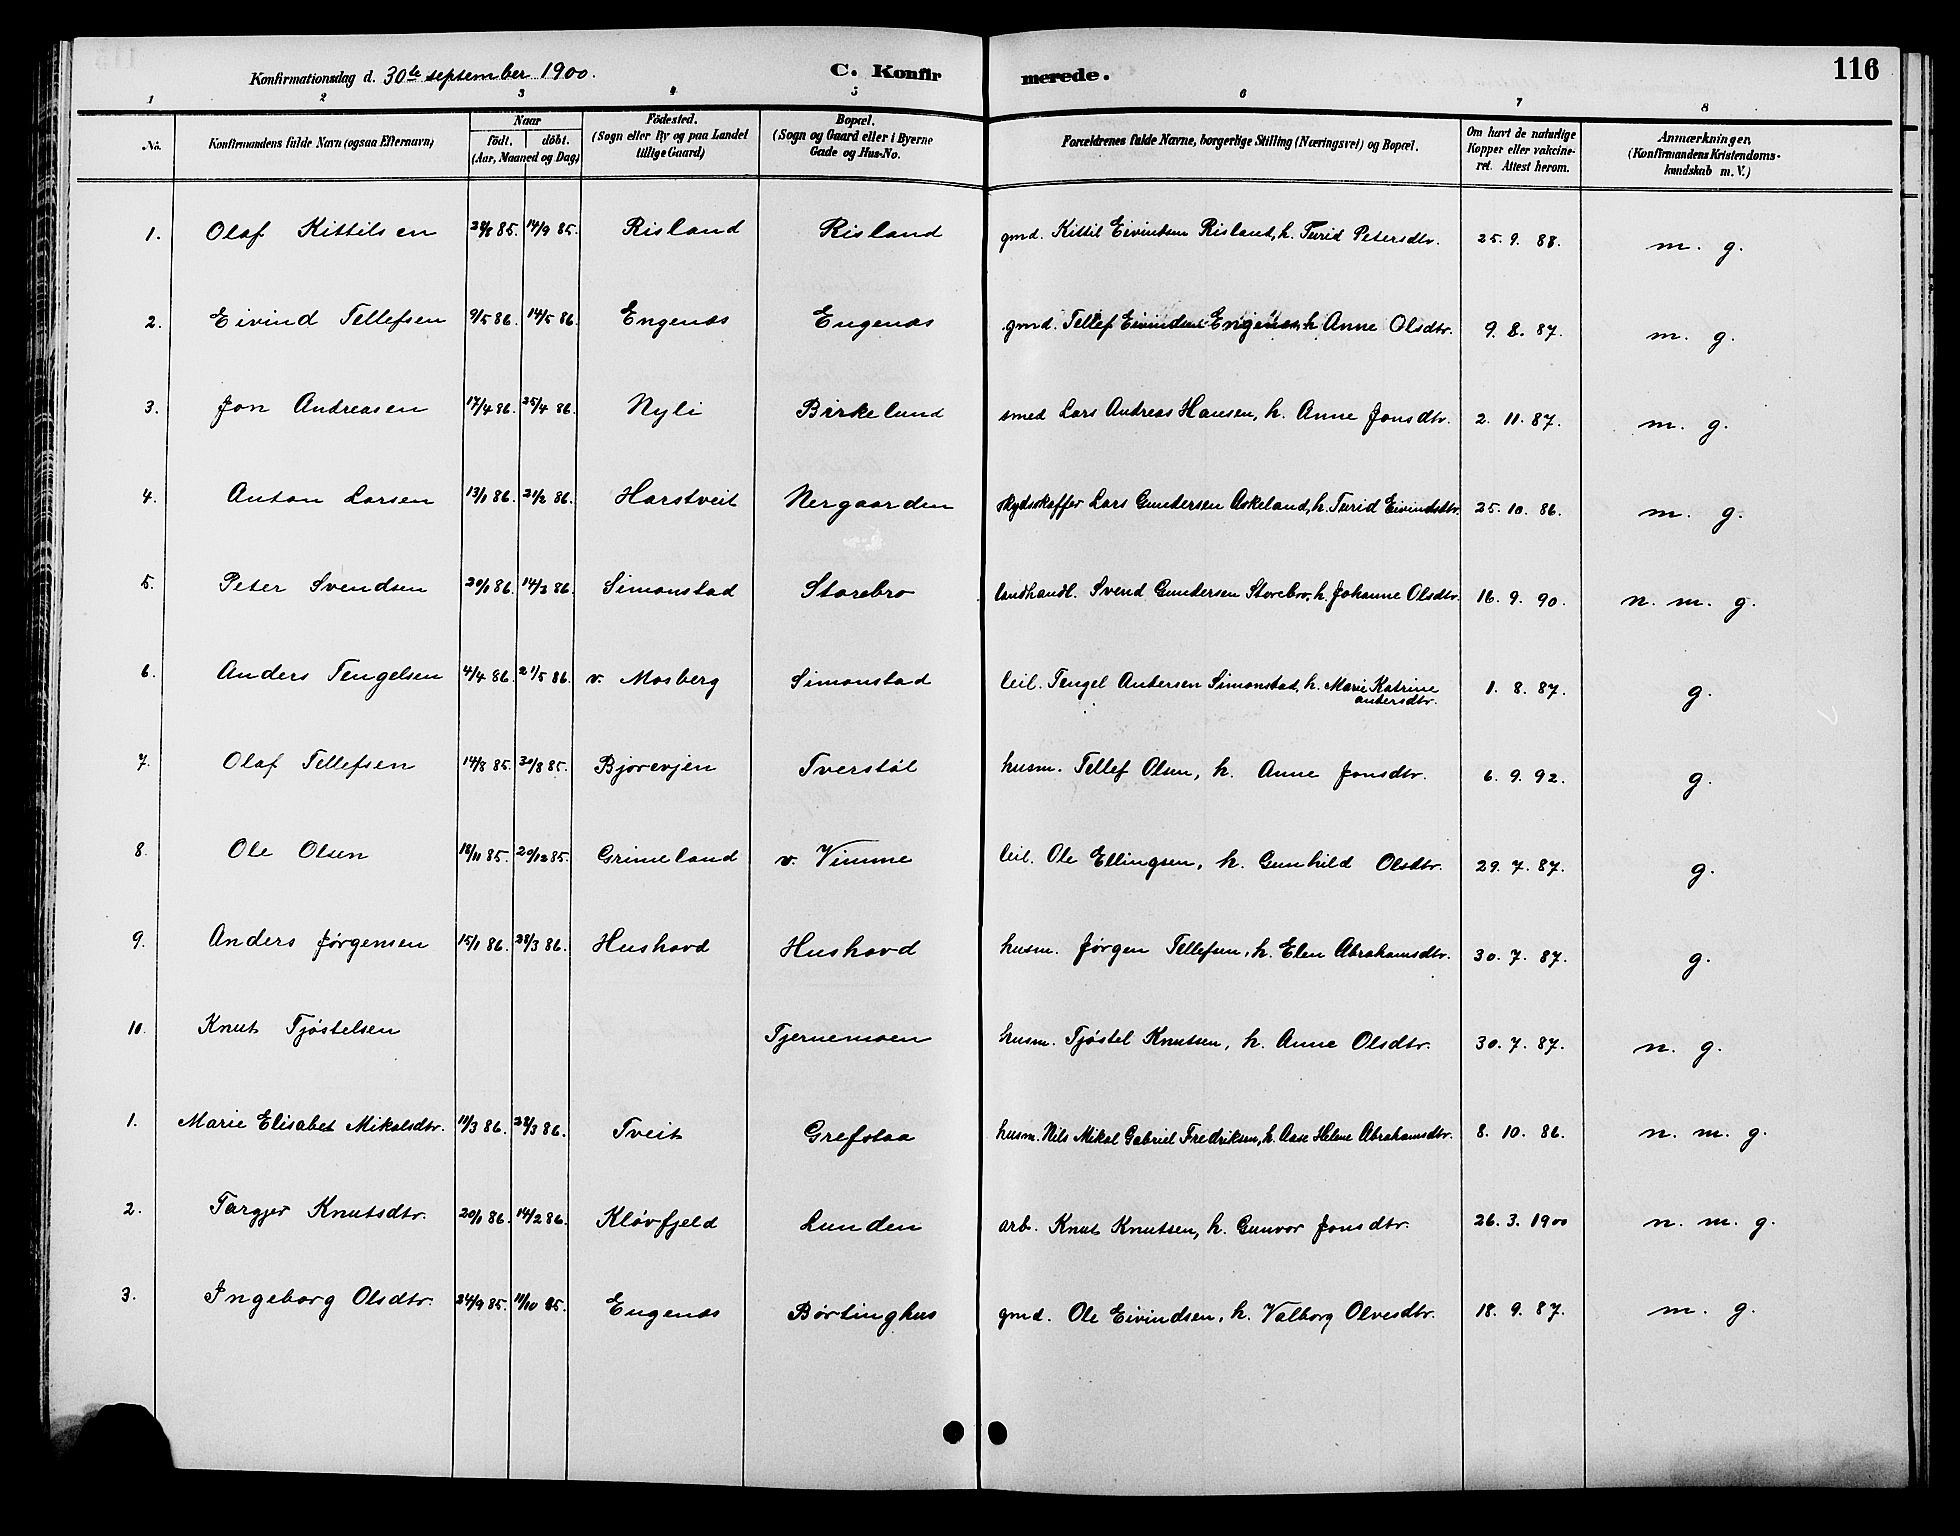 Konfirmationsdag d. 30te september 1900. C. Konfirmerede. 116
1 2 3 4 5 6 7 8
No. Konfirmandens fulde Navn (ogsaa Efternavn) Naar födt. döbt. (Aar, Maaned og Dag) Födested. (Sogn eller By og paa Landet tillige Gaard) Bopæl. (Sogn og Gaard eller i Byerne Gade og Hus-No. Forældrenes fulde Navne, borgerlige Stilling (Næringsvei) og Bopæl. Om havt de naturlige Kopper eller vakcineret. Attest herom. Anmærkninger. (Konfirmandens Kristendomskundskab m. V.)
1. Olaf Kittilsen 85. 14/9 85. Risland Risland gmd. Kittil Eivindsen Risland, h. Turid Petersdtr. 25. 9. 88. m. g.
2. Eivind Tellefsen 9/5 86. 14/5 86. Engenæs Engenæs gmd. Tellef Eivindsen Engenæs, h. Anne Olsdtr. 9. 8. 87. m. g.
3. Jon Andreasen 17/4 86. 25/4 86. Nyli Birkeland smed Lars Andreas Hansen, h. Anne Jonsdtr. 2. 11. 87. m. g.
4. Anton Larsen 13/1 86. 21/2 86. Harstveit Nergaarden skydsskaffer Lars Gundersen Askeland, h. Turid Eivindsdtr. 25. 10. 86. m. g.
5. Peter Svendsen 20/1 86. 14/3 86. Simonstad Storebro landhandl. Svend Gundersen Storebro, h. Johanne Olsdtr. 16. 9. 90. n. m. g.
6. Anders Tengelsen 4/4 86. 21/5 86. v. Mosberg Simonstad leil. Tengel Andersen Simonstad, h. Marie Katrine
andersdtr. 1. 8. 87. g.
7. Olaf Tellefsen 14/8 85. 30/8 85. Bjorevjen Tverstøl husm. Tellef Olsen, h. Anne Jonsdtr. 6. 9. 92. g.
8. Ole Olsen 18/11 85. 29/12 85. Grimeland v. Vimme leil. Ole Ellingsen, h. Gunhild Olsdtr. 29. 7. 87. g.
9. Anders Jørgensen 15/1 86. 28/3 86. Hushovd Hushovd husm. Jørgen Tellefsen, h. Elen Abrahamsdtr. 30. 7. 87. g.
10. Knut Tjøstelsen Tjernemoen husm. Tjøstel Knutsen, h. Anne Olsdtr. 30. 7. 87. n. g.
1. Marie Elisabet Mikalsdtr. 11/3 86. 28/3 86. Tveit Grefstaa husm. Nils Mikal Gabriel Fredriksen, h. Aase Helene Abrahamsdtr. 8. 10. 86. n. m. g.
2. Targjer Knutsdtr. 20/1 86. 14/2 86. Kløvfjeld Lunden arb. Knut Knutsen, h. Gunvor Jonsdtr. 26. 3. 1900 n. m. g.
3. Ingeborg Olsdtr. 24/9 85. 11/10 85. Engenæs Børtinghus gmd. Ole Eivindsen, h. Valborg Olvesdtr. 18. 9. 87. m. g.